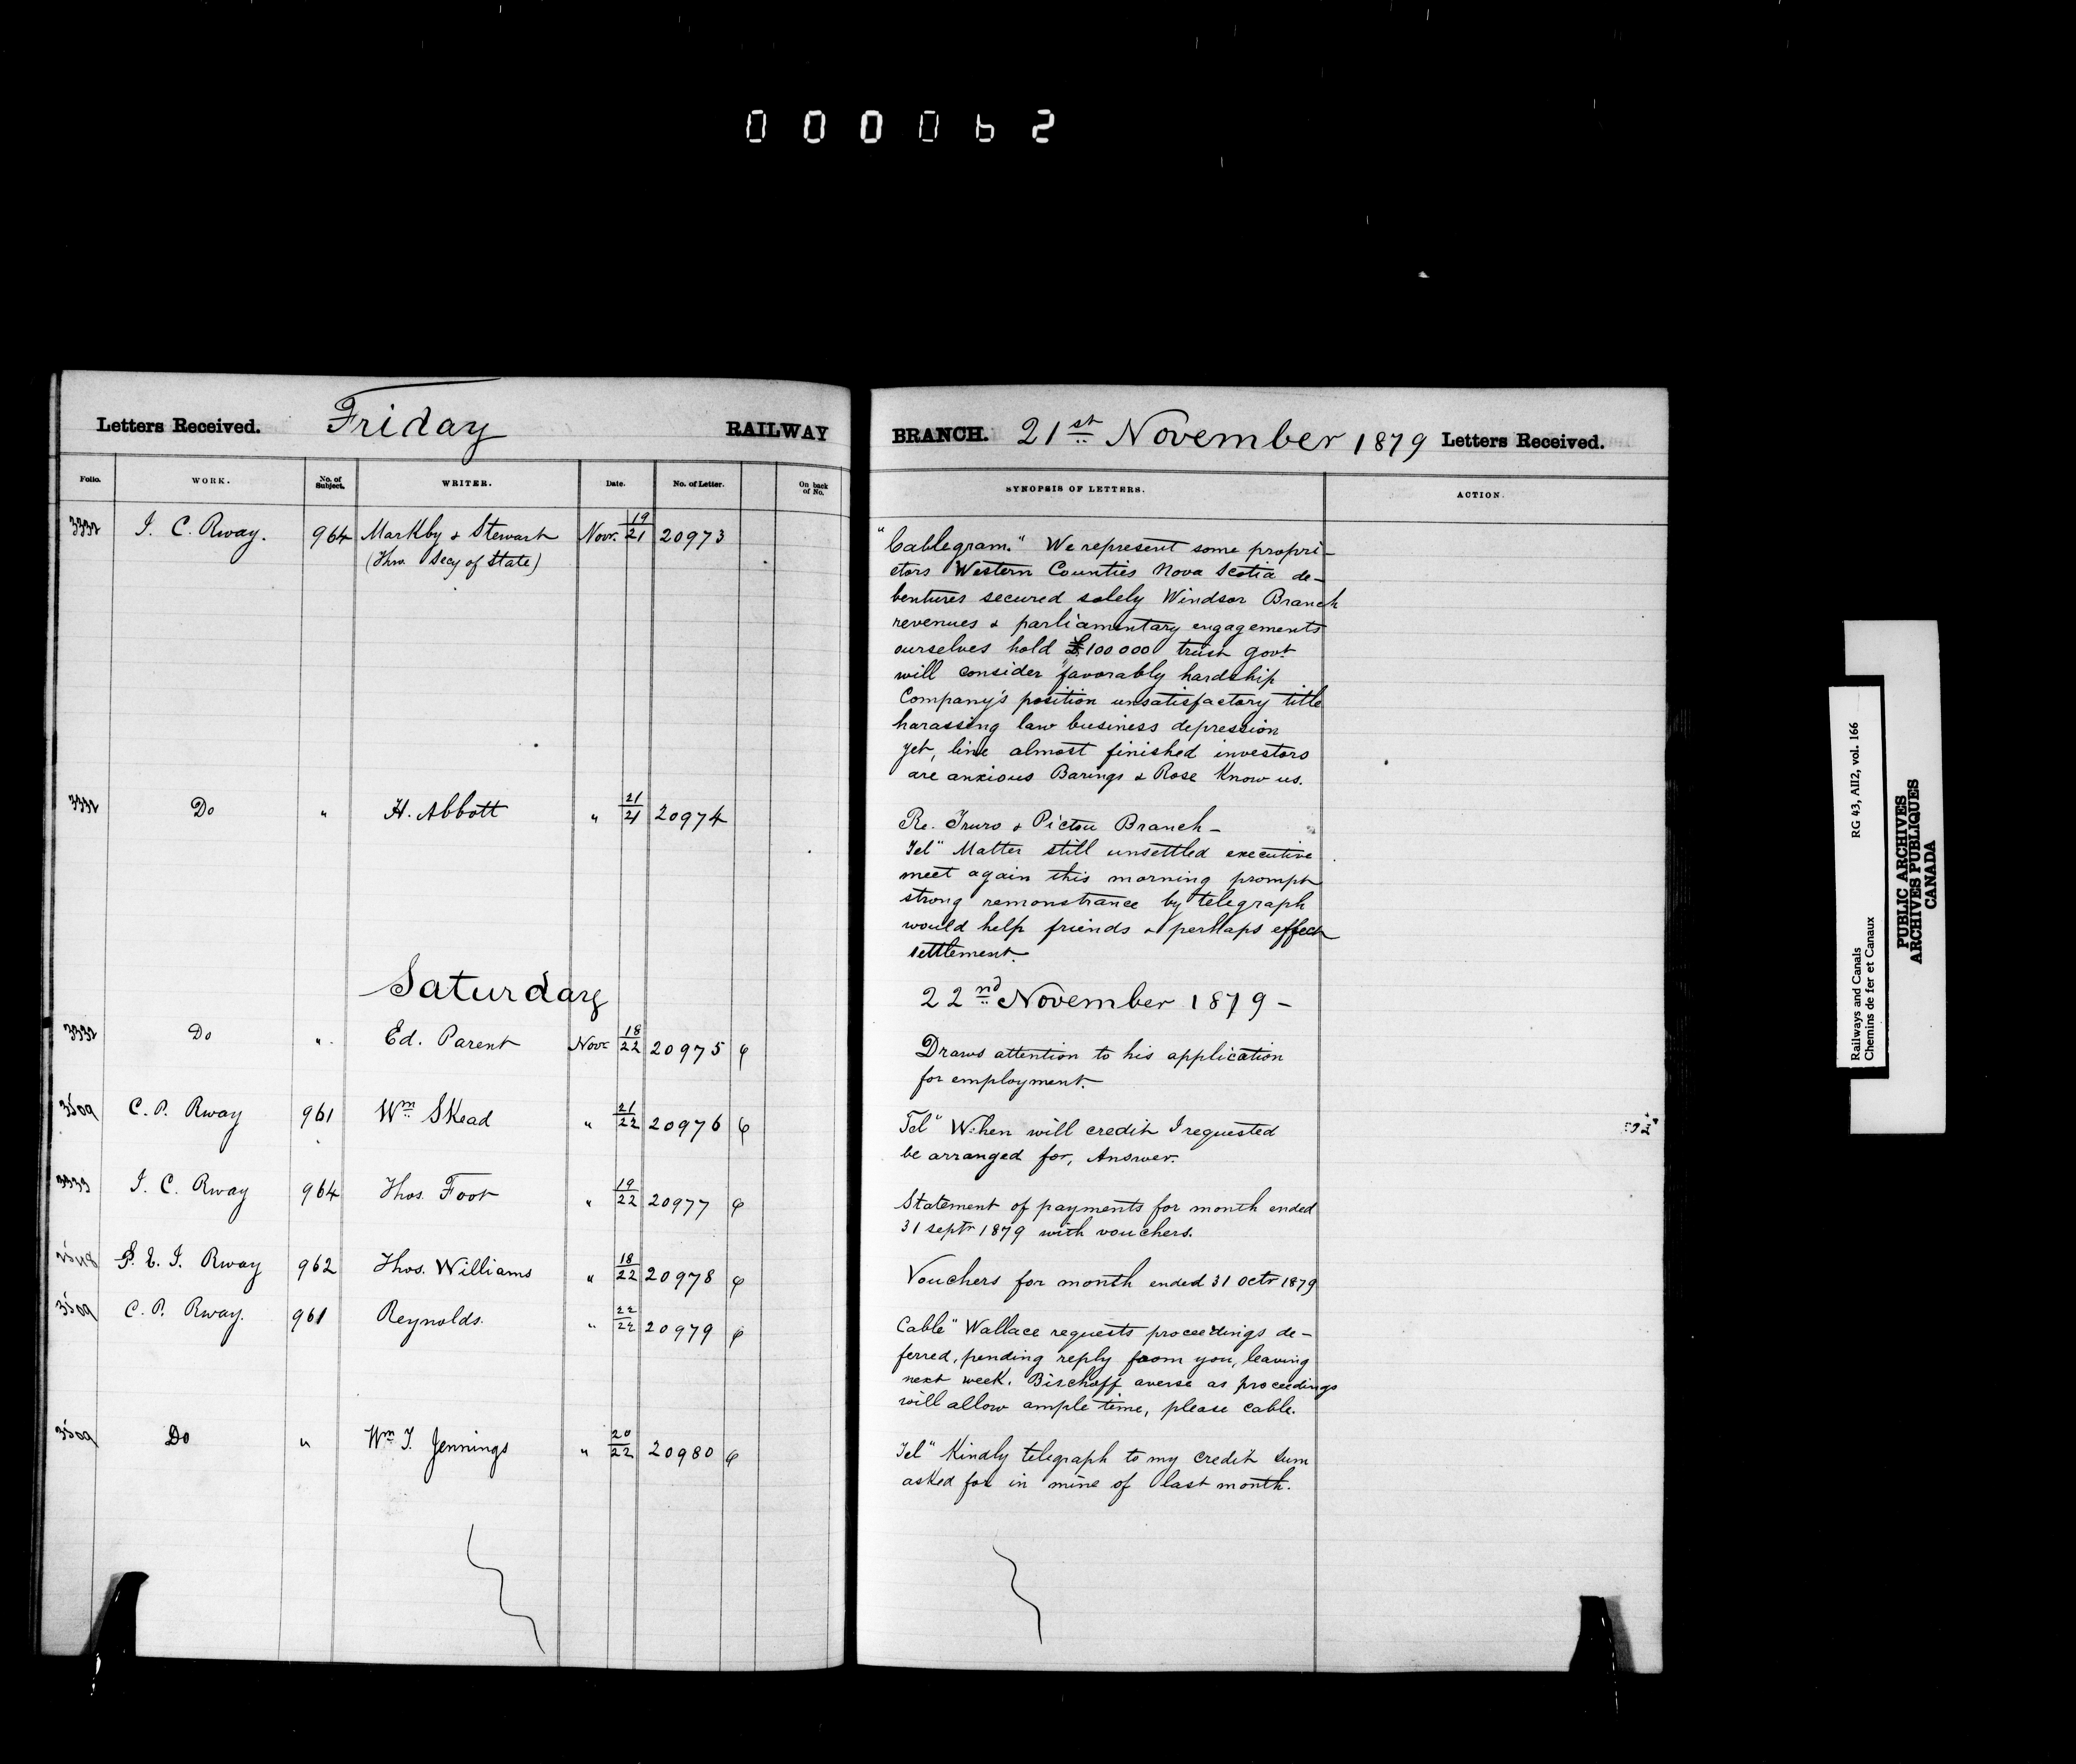 000062
Letters Received. Friday RAILWAY BRANCH. 21st November 1879 Letters Received.
Folio. WORK. No. of Subject. WRITER. Date. No. of Letter. On back of No. SYNOPSIS OF LETTERS. ACTION.
3332 I. C. Rway. 964 Markby & Stewart Nov. 19/21 20973
(Thro. Secy of State)
"Cablegram." We represent some propri-
etors Western Counties Nova Scotia de-
bentures secured solely Windsor Branch
revenues & parliamentary engagements
ourselves hold £100000 trust govt
will consider favorably hardship
Company's position unsatisfactory title
harassing law business depression
yet, line almost finished investors
are anxious Barings & Rose Know us.
3332 Do " H. Abbott " 21/21 20974
Re. Truro & Pictou Branch-
Tel" Matter still unsettled executive
meet again this morning prompt
strong remonstrance by telegraph
would help friends & perhaps effect
settlement.
Saturday 22nd November 1879-
3332 Do " Ed. Parent Nov 18/22 20975
Draws attention to his application
for employment.
3509 C. P. Rway 961 Wm Skead " 21/22 20976
Tel" When will credit I requested
be arranged for, Answer.
3333 I. C. Rway 964 Thos. Foot " 19/22 20977
Statement of payments for month ended
31 septr 1879 with vouchers.
P. E. I. Rway 962 Thos. Williams " 18/22 20978
Vouchers for month ended 31 Octr 1879
3509 C. P. Rway. 961 Reynolds. " 22/22 20979
Cable" Wallace requests proceedings de-
ferred, pending reply from you, leaving
next week. Bischoff averse as proceedings
will allow ample time, please cable.
3509 Do " Wm T. Jennings " 20/22 20980
Tel" Kindly telegraph to my credit sum
asked for in mine of last month.
Railways and Canals RG 43, AII2, vol. 166
Chemins de fer et Canaux
PUBLIC ARCHIVES
ARCHIVES PUBLIQUES
CANADA